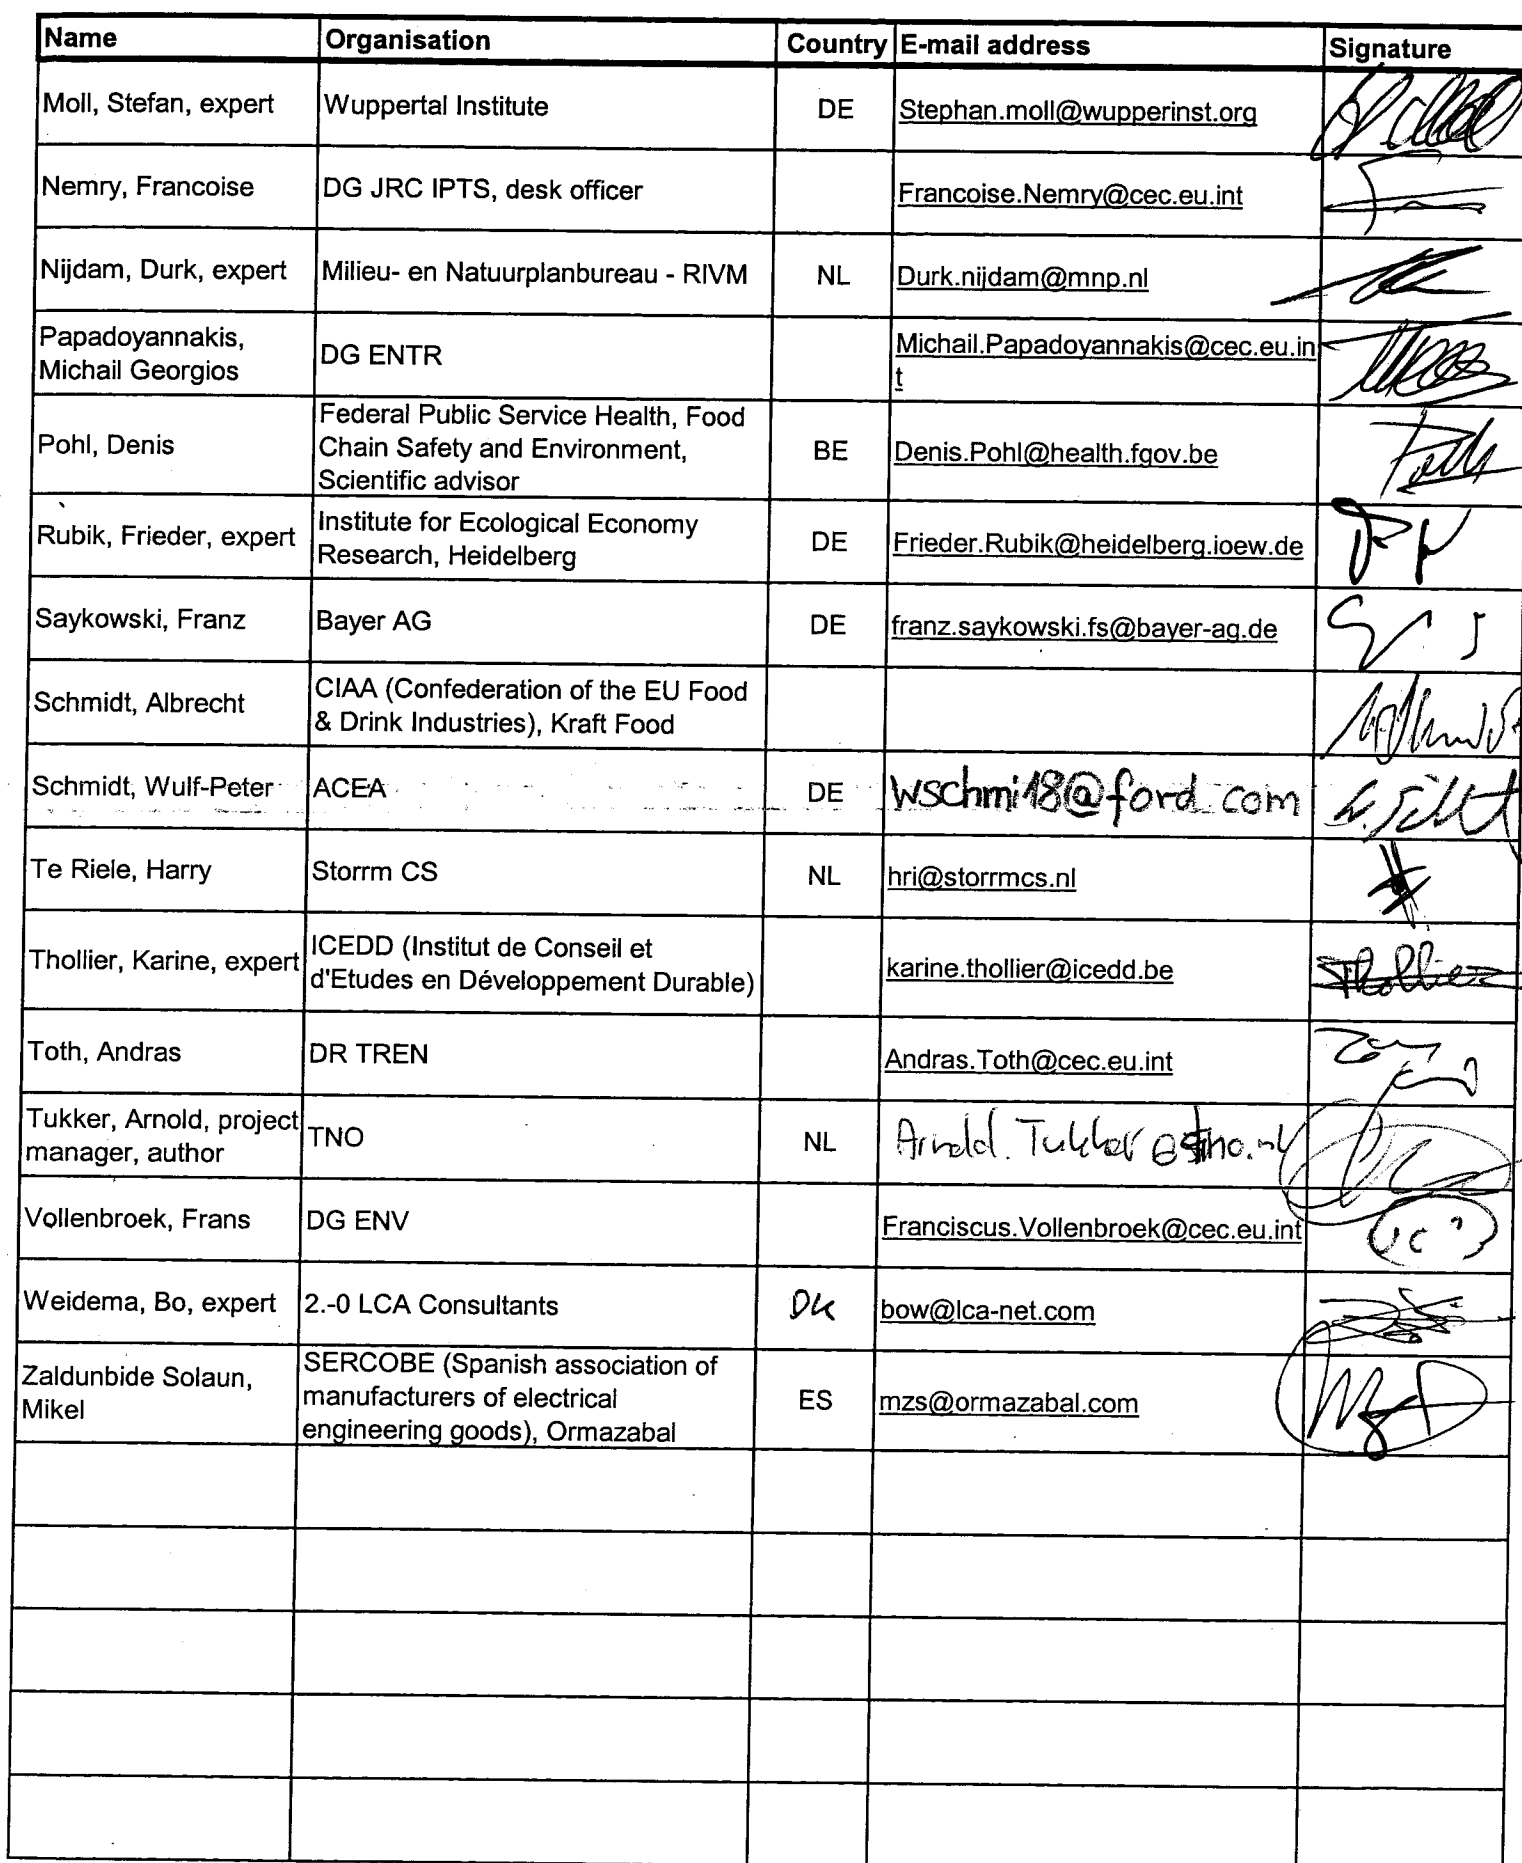 Name Organisation Country E-mail address Signature
Moll, Stefan, expert Wuppertal Institute DE Stephan.moll@wupperinst.org
Nemry, Francoise DG JRC IPTS, desk officer Francoise.Nemry@cec.eu.int
Nijdam, Durk, expert Milieu- en Natuurplanbureau - RIVM NL Durk.nijdam@mnp.nl
Papadoyannakis,
Michail Georgios
DG ENTR
Michail.Papadoyannakis@cec.eu.in
t
Pohl, Denis
Federal Public Service Health, Food
Chain Safety and Environment,
Scientific advisor
BE Denis.Pohl@health.fgov.be
Rubik, Frieder, expert
Institute for Ecological Economy
Research, Heidelberg
DE Frieder.Rubik@heidelberg.ioew.de
Saykowski, Franz Bayer AG DE franz.saykowski.fs@bayer-ag.de
Schmidt, Albrecht
CIAA (Confederation of the EU Food
& Drink Industries), Kraft Food
Schmidt, Wulf-Peter ACEA DE wschmi18@ford.com
Te Riele, Harry Storrm CS NL hri@storrmcs.nl
Thollier, Karine, expert
ICEDD (Institut de Conseil et
d'Etudes en Développement Durable)
karine.thollier@icedd.be Thollier
Toth, Andras DR TREN Andras.Toth@cec.eu.int
Tukker, Arnold, project
manager, author
TNO NL Arnold.Tukker@tno.nl
Vollenbroek, Frans DG ENV Franciscus.Vollenbroek@cec.eu.int
Weidema, Bo, expert 2.-0 LCA Consultants DK bow@lca-net.com
Zaldunbide Solaun,
Mikel
SERCOBE (Spanish association of
manufacturers of electrical
engineering goods), Ormazabal
ES mzs@ormazabal.com